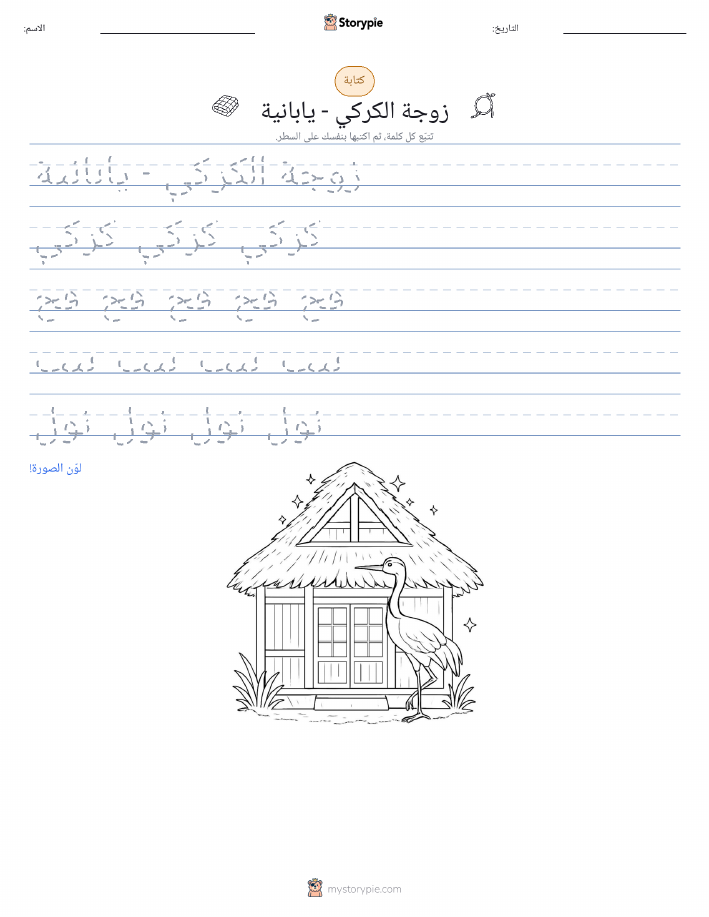 الاسم:
Storypie
التاريخ:
كتابة
زوجة الكركي - يابانية
تتبّع كل كلمة، ثم اكتبها بنفسك على السطر.
زوجة الكركي - يابانية
كركي كركي كركي
نول نول نول نول
لوّن الصورة!
mystorypie.com